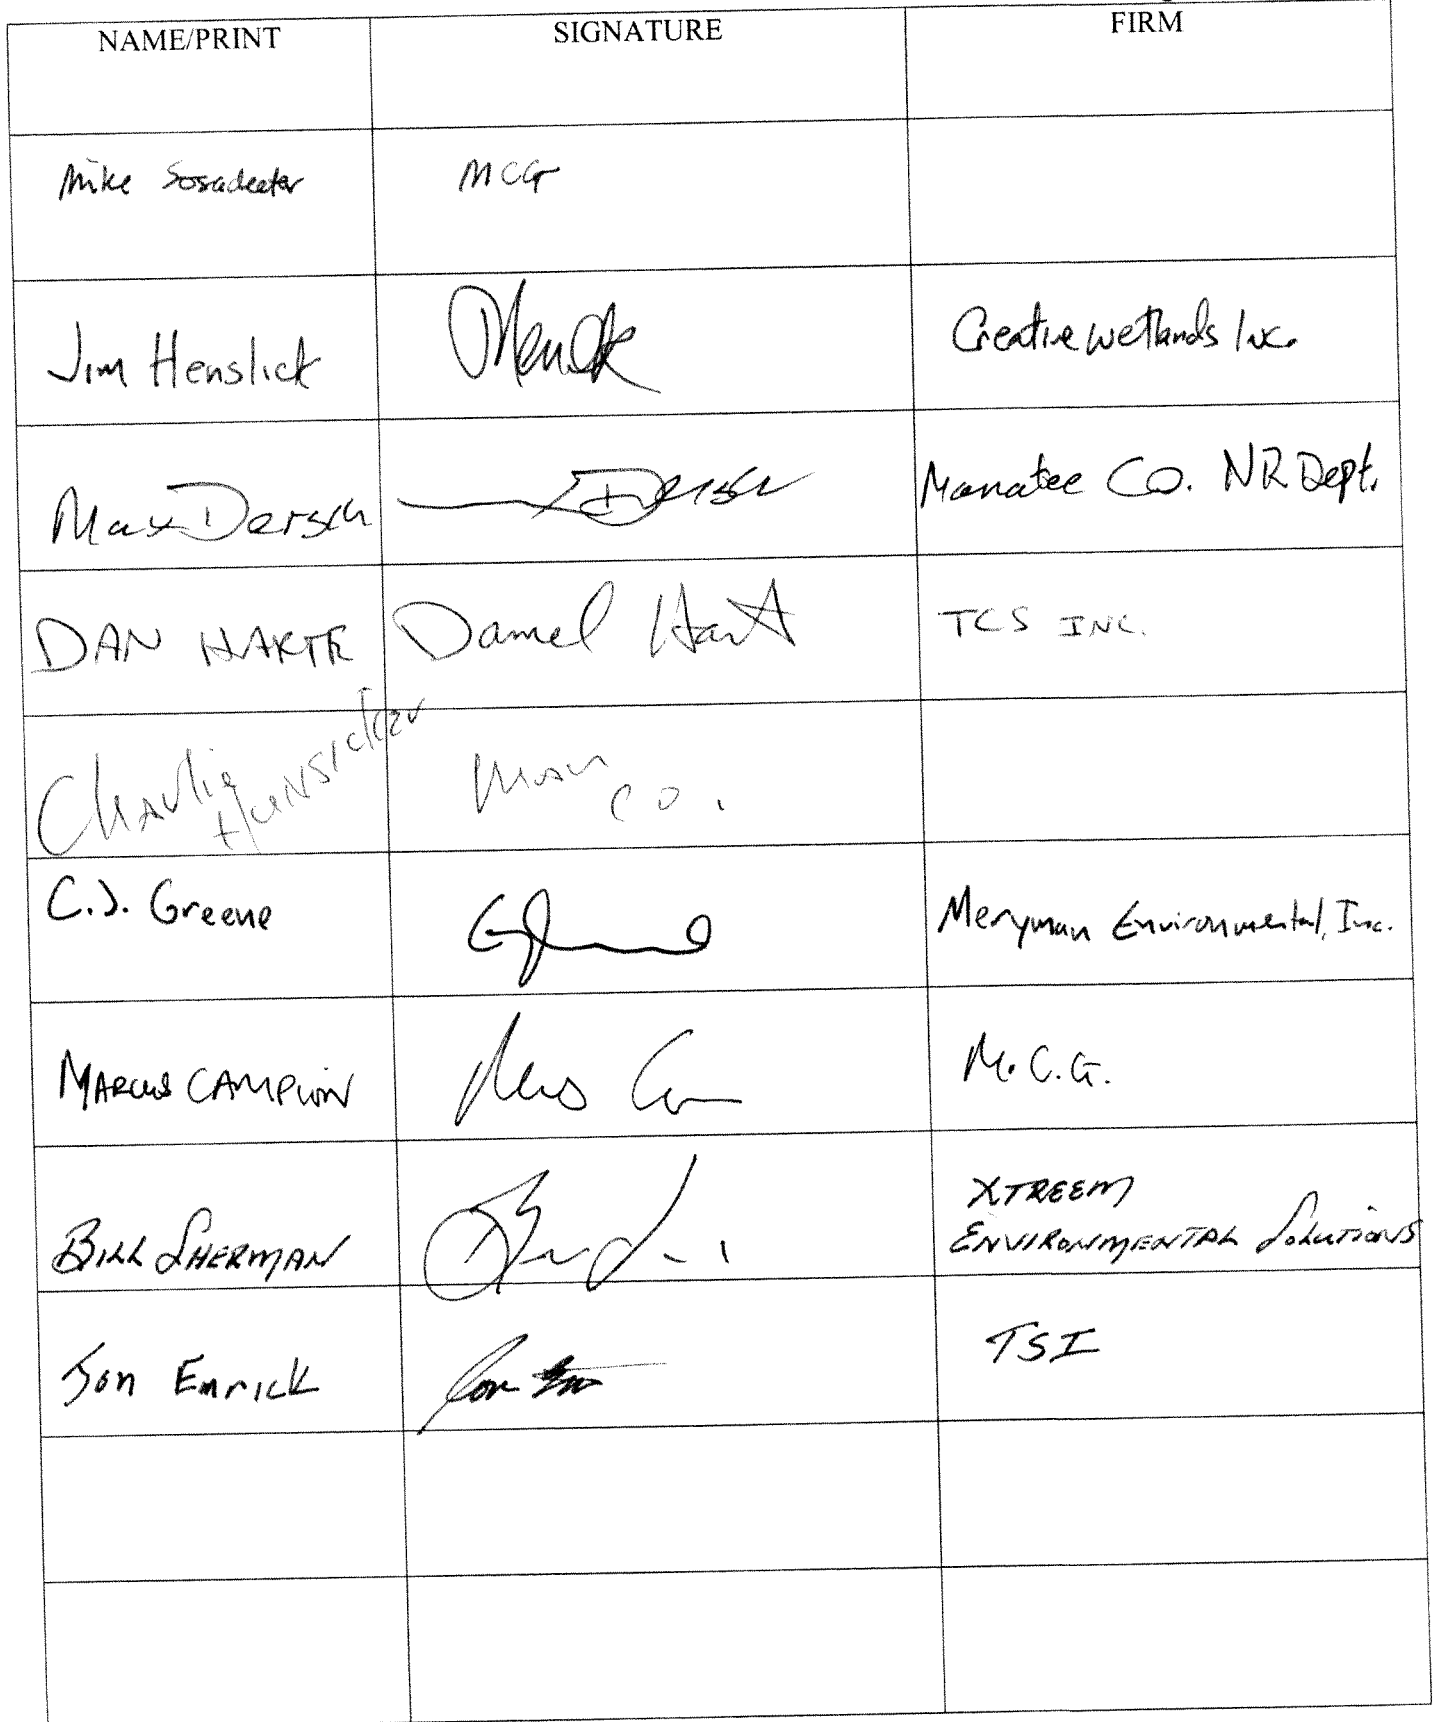 NAME/PRINT SIGNATURE FIRM
Mike Sosadeeter MCG
Jim Henslick Creative Wetlands Inc.
Max Dersch Dersch Manatee Co. NR Dept.
DAN HARTE Daniel Hart TCS INC.
Charlie Hunsicker Man
CO.
C.J. Greene Meryman Environmental, Inc.
MARCUS CAMPION M.C.G.
BILL SHERMAN XTREEM
ENVIRONMENTAL SOLUTIONS
Jon Emrick TSI